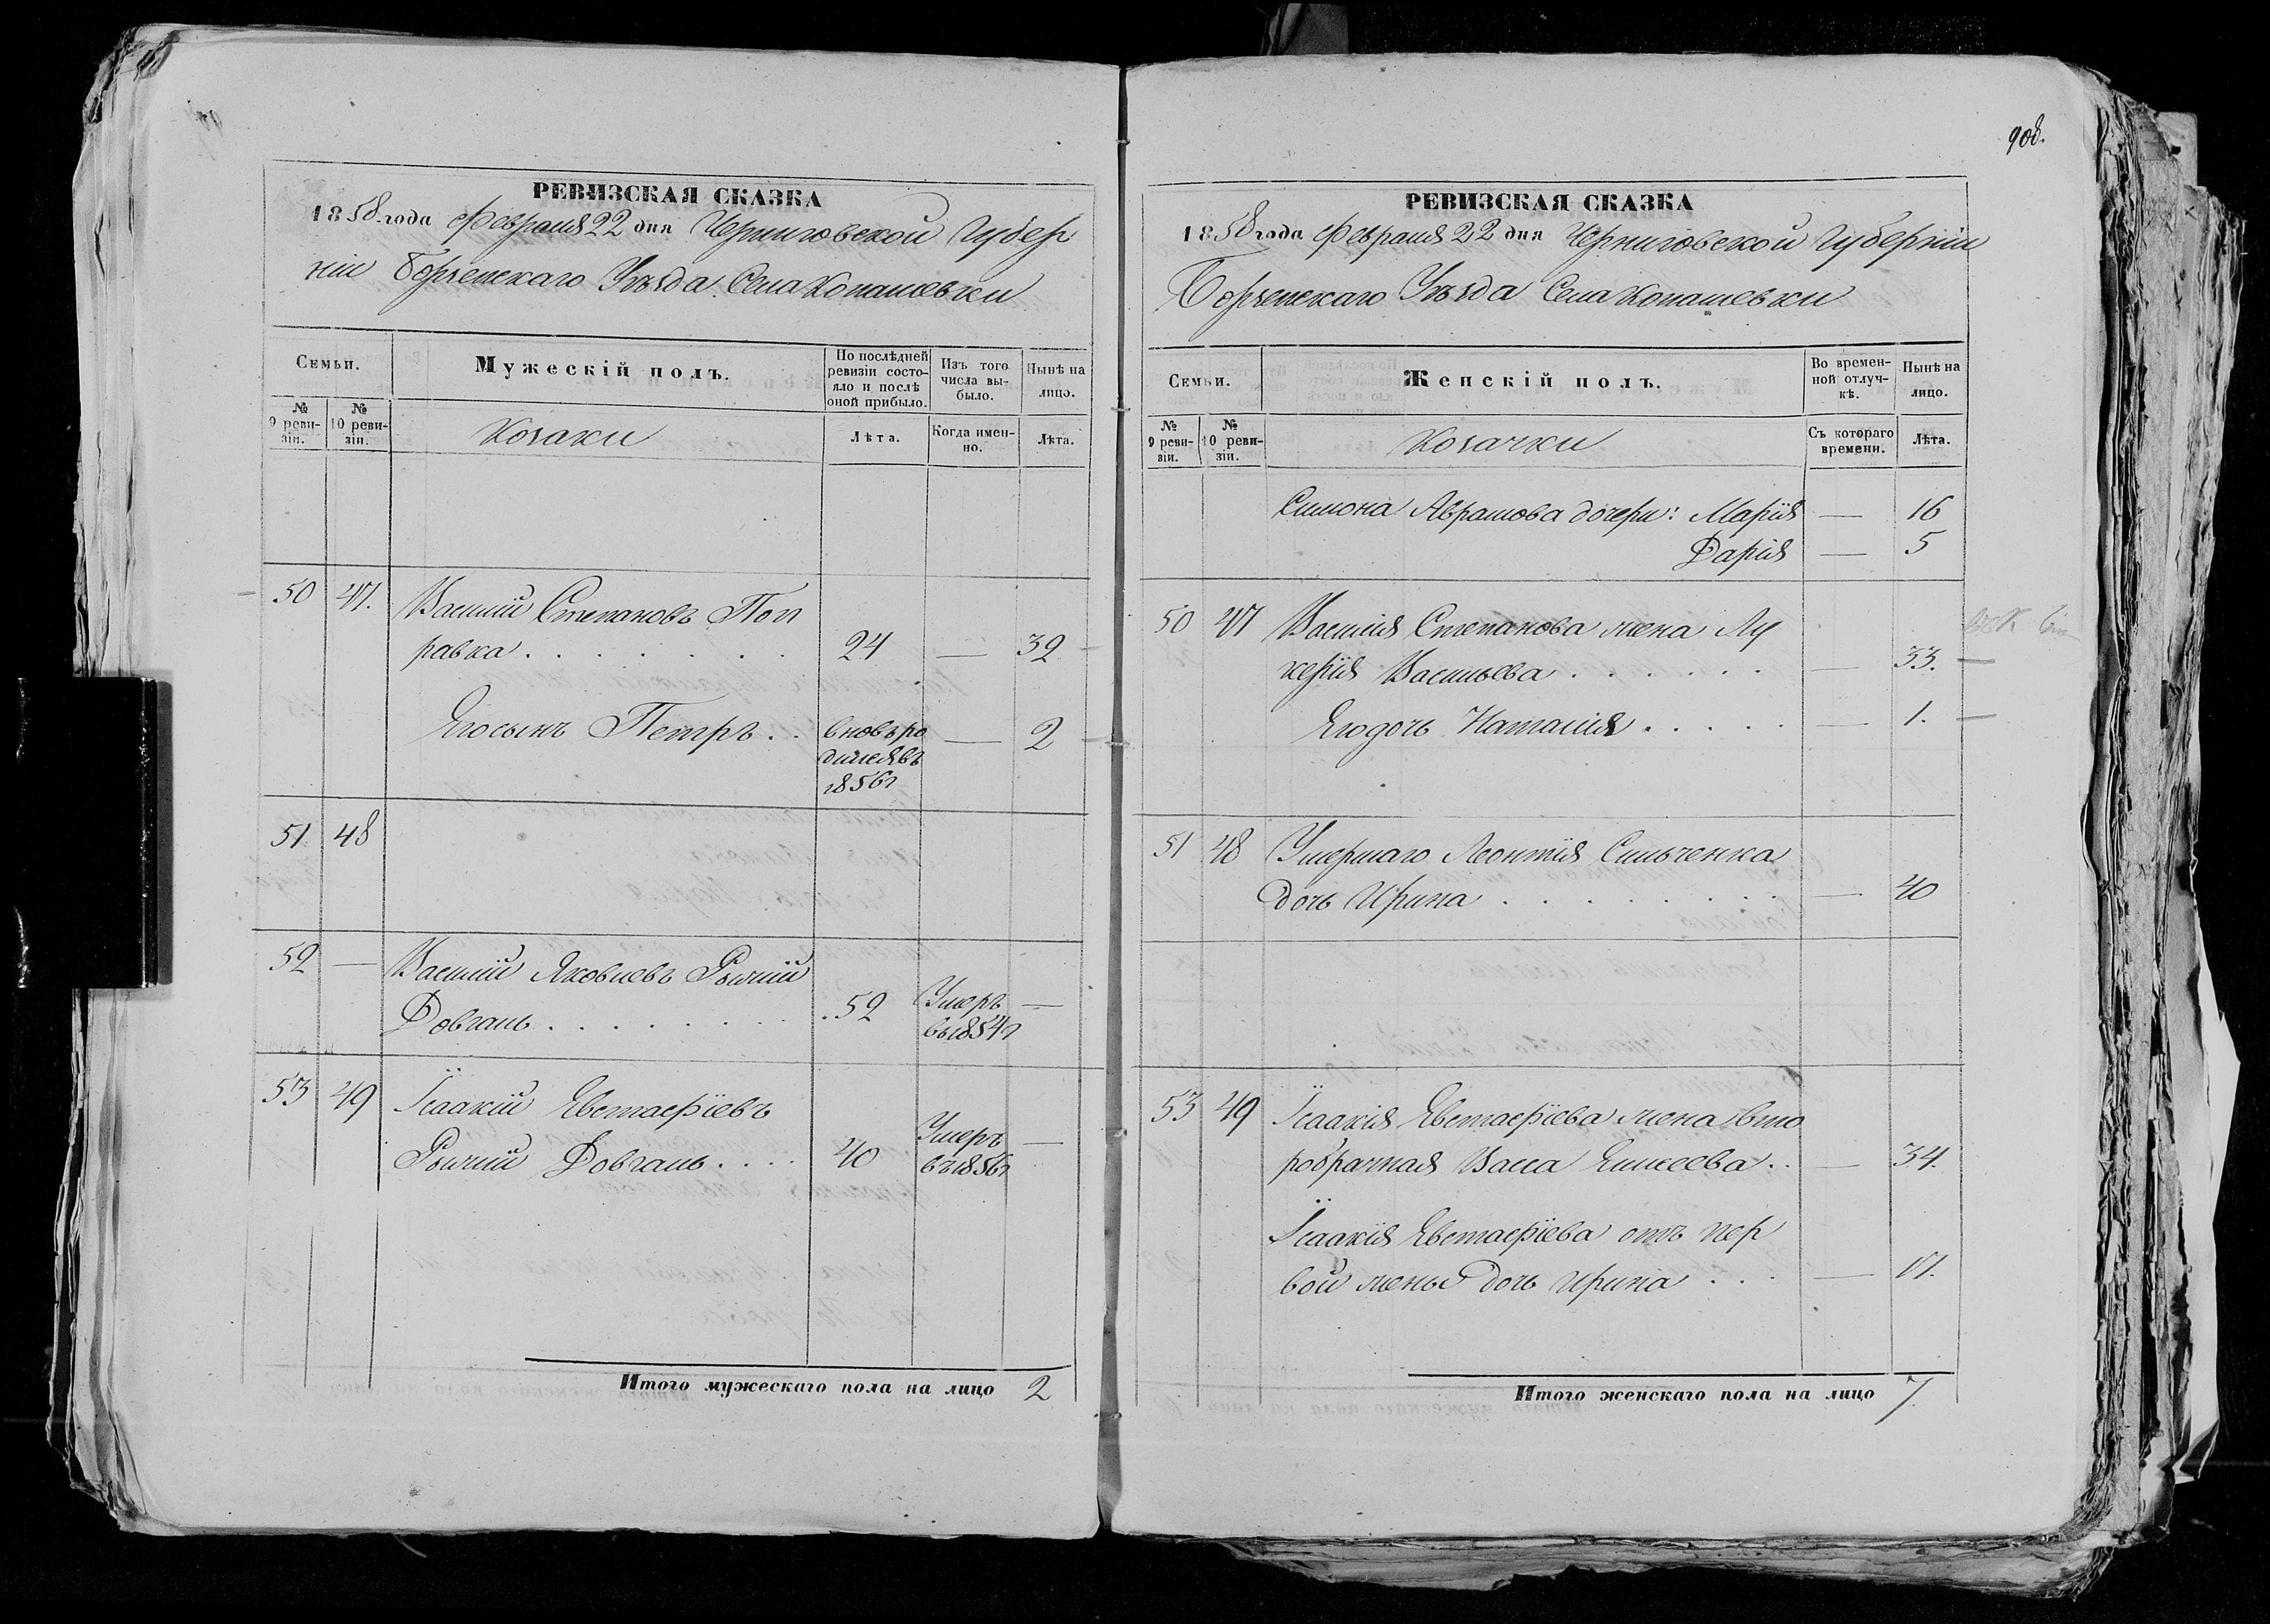 РЕВИЗСКАЯ СКАЗКА
1858 года Февраля 22 дня Черниговской Губер
ніи Борзенскаго Уѣзда Села Копашевки
Семьи.
Мужескій полъ.
По послѣдней ревизіи состояло и послѣ оной прибыло.
Изъ того числа выбыло.
Нынѣ на лицо.
№ 9 ревизіи.
№ 10 ревизіи.
Козаки
Лѣта.
Когда именно.
Лѣта.
50 47. Василій Степановъ Поп
равка . . . . . . . 24 — 32
Его сынъ Петръ . . вновь ро — 2
дился въ
1856 г
51 48
52 — Василій Яковлевъ Рылий
Довгаль . . . . . . . . 52 Умеръ —
въ 1854 г
53 49 Їсаакій Евстафіевъ
Рылий Довгаль . . . . 40 Умеръ —
въ 1856 г
Итого мужескаго пола на лицо 2
908.
РЕВИЗСКАЯ СКАЗКА
1858 года Февраля 22 дня Черниговской Губерніи
Борзенскаго Уѣзда Села Копашевки
Семьи.
Женскій полъ.
Во временной отлучкѣ.
Нынѣ на лицо.
№ 9 ревизіи.
№ 10 ревизіи.
Козачки
Съ котораго времени.
Лѣта.
Симона Аврамова дочери: Марія — 16
Дарія — 5
50 47 Василія Степанова жена Лу
керія Васильева . . . . . . — 33.
Его дочь Наталія . . . . . — 1.
51 48 Умершаго Леонтія Сильченка
дочь Ирина . . . . . . . . . — 40
53 49 Їсаакія Евстафіева жена вто
робрачная Васса Елисеева . . — 34.
Їсаакія Евстафіева отъ пер
вой жены дочь Ирина . . . — 17.
Итого женскаго пола на лицо 7.